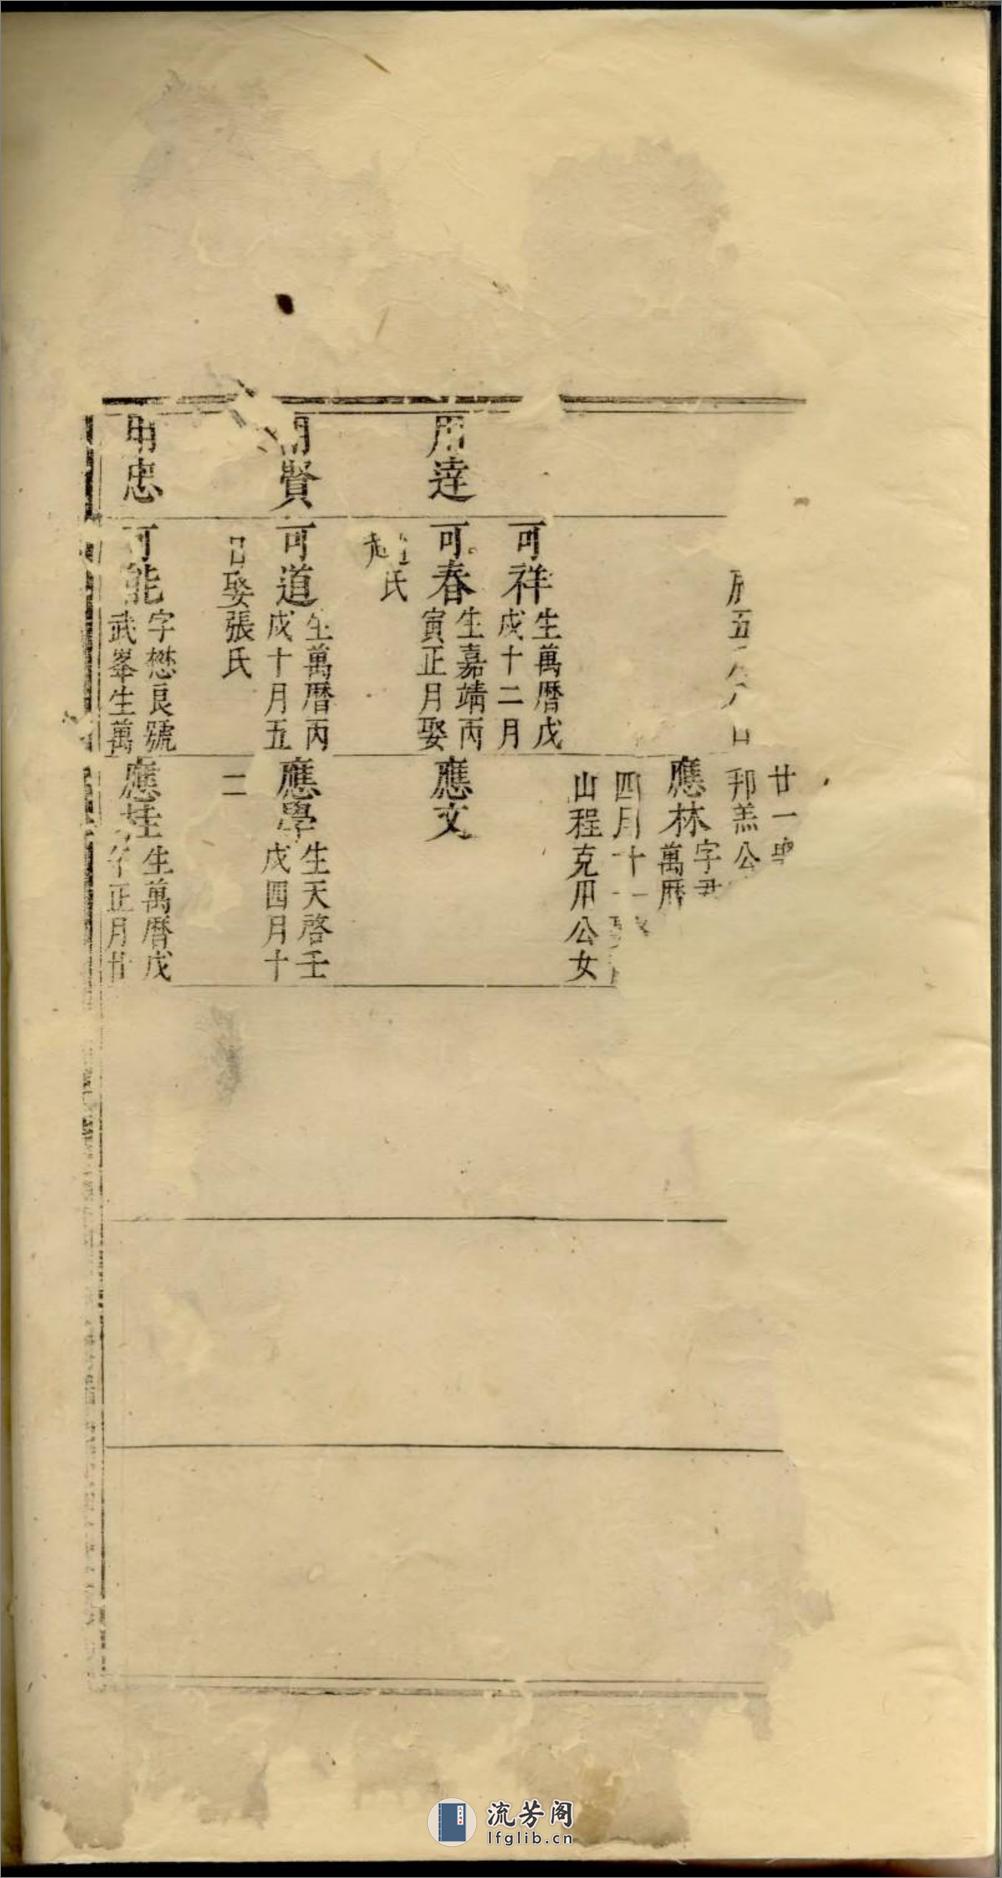 用達
用賢
用忠
五
可祥
生萬曆戊
戌十二月
可春
生嘉靖丙
寅正月娶
趙氏
可道
生萬曆丙
戌十月五
日娶張氏
可能
字懋良號
武峯生萬
廿一
邦羔公
應林
字尹
萬曆
四月十
山程克用公女
應文
應學
生天啓壬
戌四月十
二
應桂
生萬曆戊
午正月廿
流芳阁
lfglib.cn